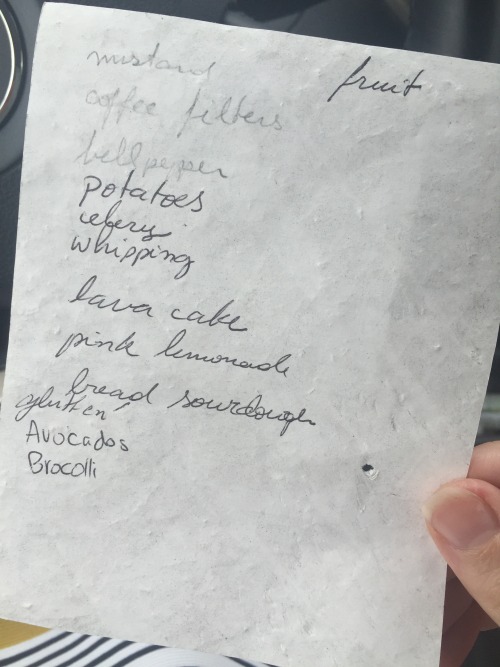 mustard
fruit
coffee filters
bellpepper
potatoes
celery
whipping
lava cake
pink lemonade
bread sourdough
glutten
Avocados
Brocolli